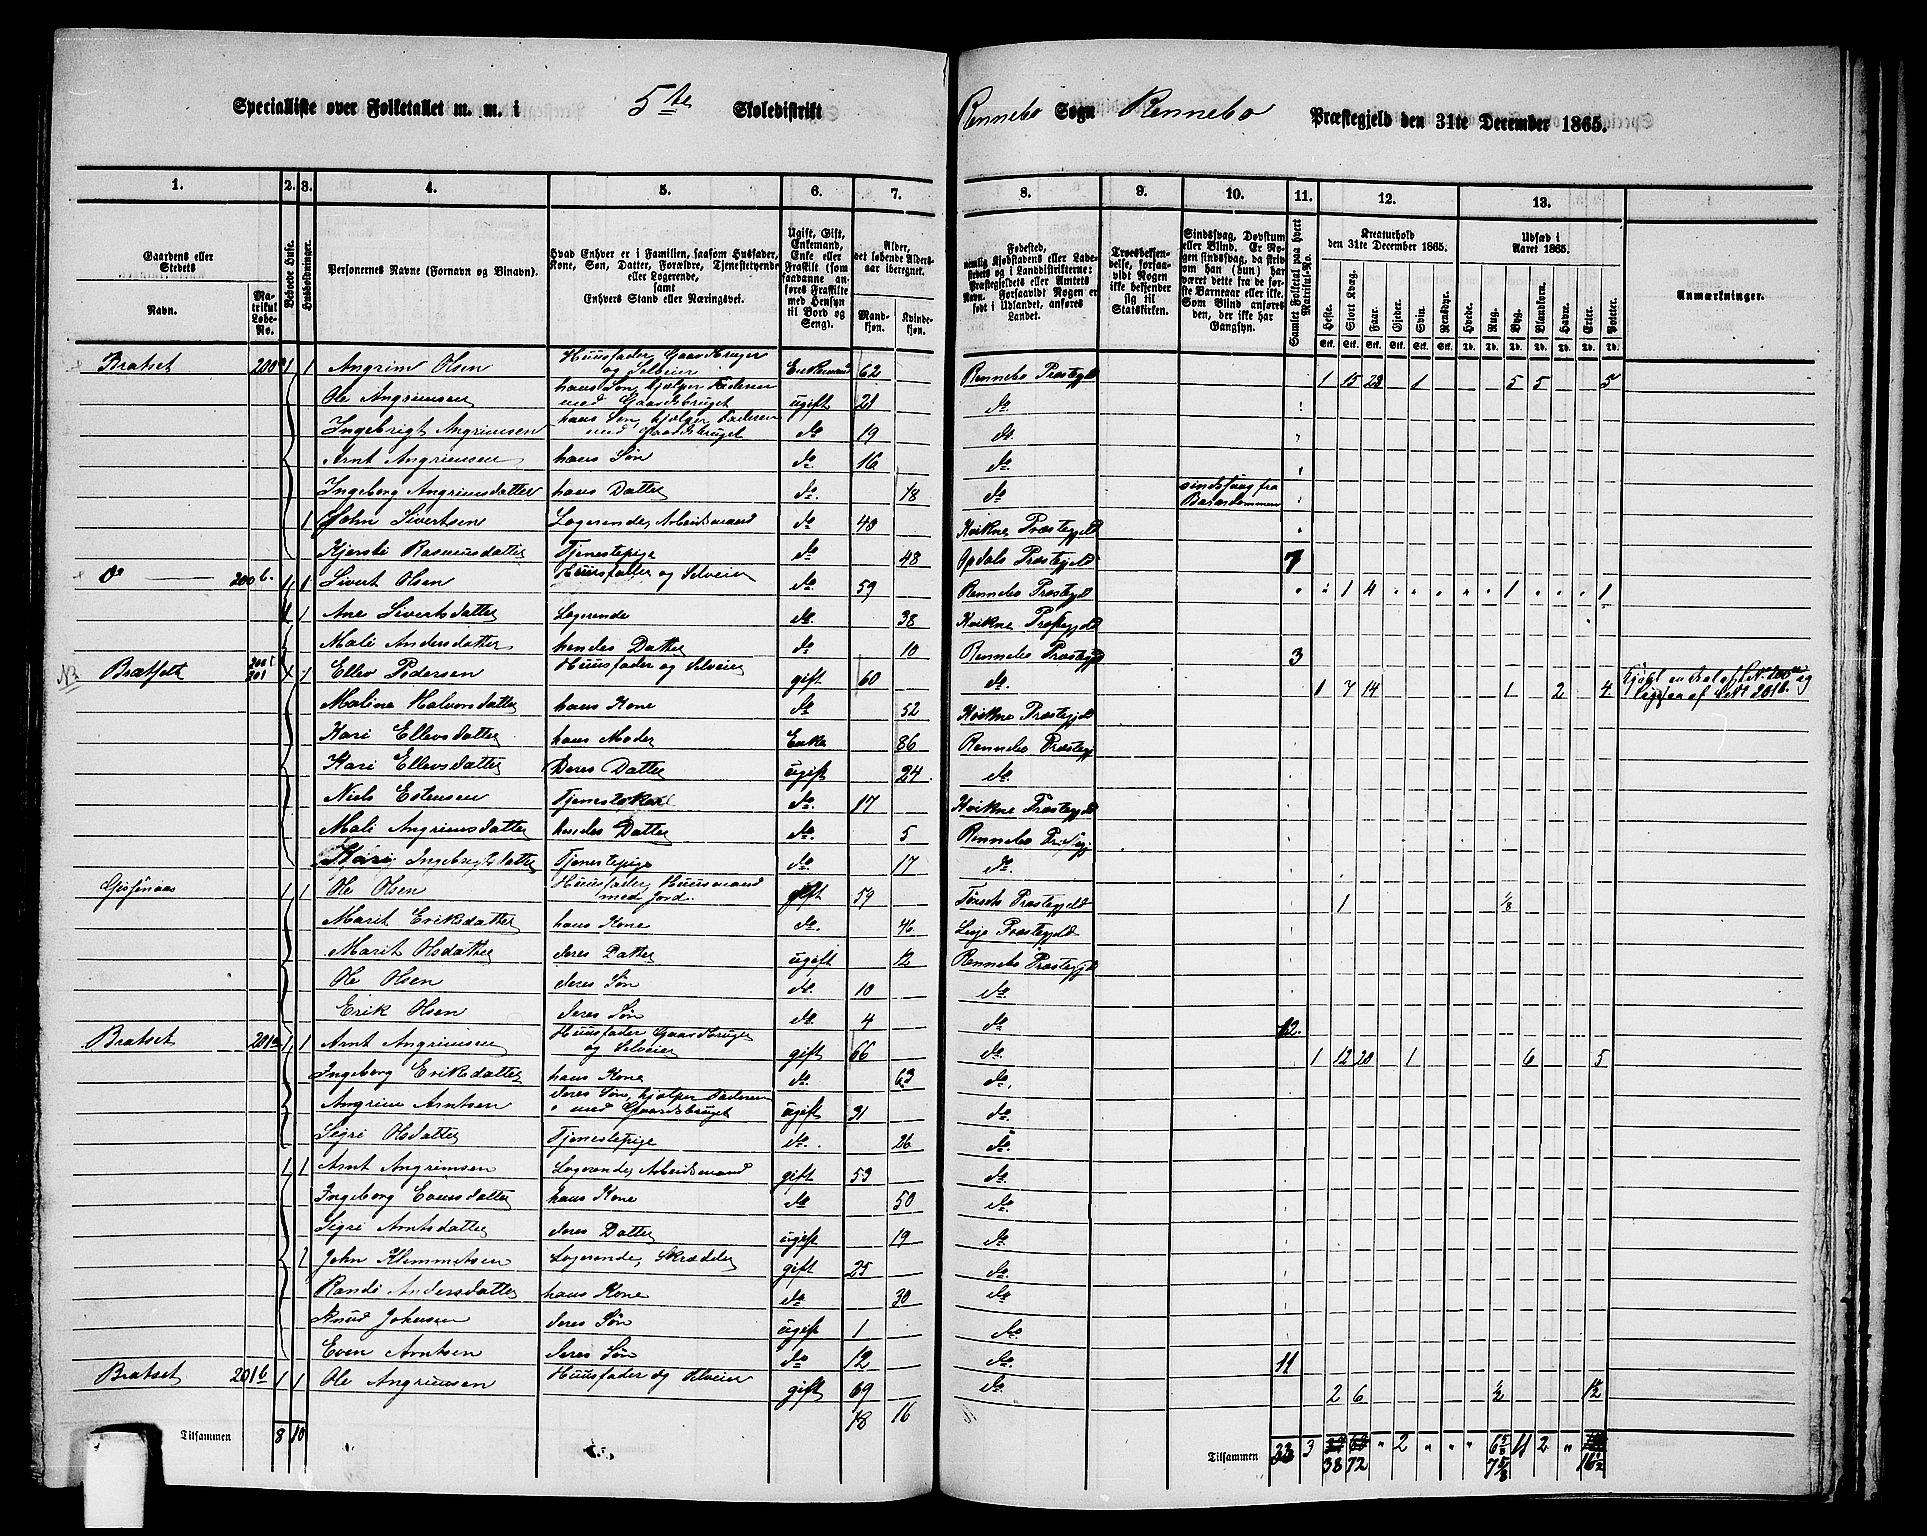 Specialliste over Folketallet m. m. i 5te Skoledistrikt Rennebo Sogn Rennebo Præstegjeld den 31te December 1865.
1. 2. 3. 4. 5. 6. 7. 8. 9. 10. 11. 12. 13.
Gaardens eller Stedets Navn. Matrikul Løbe-No.
Beboede Huse. Husholdninger.
Personernes Navne (Fornavn og Binavn).
Hvad Enhver er i Familien, saasom Husfader, Kone, Søn, Datter, Forældre, Tjenestetyende eller Logerende, samt Enhvers Stand eller Næringsvei.
Ugift, Gift, Enkemand, Enke eller Fraskilt (som saadanne anføres Fraskilte med Hensyn til Bord og Seng).
Alder, det løbende Alders-aar iberegnet. Mandkjøn. Kvindekjøn.
Fødested, nemlig Kjøbstadens eller Ladestedets og i Landdistrikterne: Præstegjeldets eller Amtets Navn. Forsaavidt Nogen er født i Udlandet, anføres Landet.
Troesbekjendelse, forsaavidt Nogen ikke bekjender sig til Statskirken.
Sindssvag, Døvstum eller Blind. Er Nogen sindssvag, da skrives om han (hun) har været dette fra de første Barneaar eller ikke. Som Blind anføres den, der ikke har Gangsyn.
Samlet Folketal paa hvert Matrikul-No.
Kreaturhold den 31te December 1865. Udsæd i Aaret 1865. Anmærkninger.
Heste. Stort Kvæg. Faar. Gjeder. Svin. Rensdyr. Hvede. Rug. Byg. Blandkorn. Havre. Erter. Poteter.
Stk. Stk. Stk. Stk. Stk. Stk. Td. Td. Td. Td. Td. Td. Td.
Bratset 200a 1 1 Angrim Olsen Huusfader, Gaardbruger og Selveier Enkemand 62 Rennebo Præstegjeld 1 15 23 1 5 5 5
Ole Angrimsen hans Søn, hjælper Faderen med Gaardsbruget ugift 21 do.
Ingebrigt Angrimsen hans Søn, hjælper Faderen med Gaardsbruget do 19 do.
Arnt Angrimsen hans Søn do. 16 do.
Ingeborg Angrimsdatter hans Datter do. 18 do. sindssvag fra Barndommen
1 John Sivertsen Logerende, Arbeidsmand do 40 Kvikne Præstegjeld
Kjersti Rasmusdatter Tjenestepige do 48 Opdals Præstegjeld 7
do 200b. 1 1 Sivert Olsen Huusfader og Selveier do. 59 Rennebo Præstegjeld 1 4 1 1
1 1 Ane Sivertsdatter Logerende do. 38 Kvikne Præstegjeld
Mali Andersdatter hendes Datter do 10 Rennebo Præstegjeld 3
Brætfolk 201 1 1 Ellev Pedersen Huusfader og Selveier gift 60 do. 1 7 14 1 2 4
Malina Halvorsdatter hans Kone do 52 Kvikne Præstegjeld
Kari Ellevsdatter hans Moder Enke 86 Rennebo Præstegj
Kari Ellevsdatter Deres Datter ugift 24 do.
Niels Estensen Tjenestekarl do. 17 Kvikne Præstegjeld
Mali Angrimsdatter hendes Datter do. 5 Rennebo Præstegj.
Kari Ingebrigtsdatter Tjenestepige do 17 do.
1 1 Ole Olsen Huusfader, Huusmand med Jord. gift 59 Tønsets Præstegjeld 1 1/8
Marit Eriksdatter hans Kone do. 46 Lesje Præstegjeld
Marit Olsdatter deres Datter ugift 12 Rennebo Præstegjeld
Ole Olsen deres Søn do. 10 do.
Erik Olsen deres Søn do. 4 do 12.
Bratset 201a 1 1 Arnt Angrimsen Huusfader Gaardbruger og Selveier gift 66 do. 1 12 20 1 6 5
Ingeborg Eriksdatter hans Kone do. 63 do.
Angrim Arntsen deres Søn, hjælper Faderen med Gaardsbruget ugift 31 do.
Sigri Olsdatter Tjenestepige do. 26 do.
1 1 Arnt Angrimsen Logerende, Arbeidsmand gift 53 do.
Ingeborg Evensdatter hans Kone do 50 do.
Sigri Arntsdatter deres Datter ugift 19 do.
John Klemmetsen Logerende, Skrædder gift 25 do.
Randi Andersdatter hans Kone do 30 do.
Knud Johnsen deres Søn ugift 1 do.
Even Arntsen deres Søn do 12 do. 11
Bratset 201b 1 1 Ole Angrimsen Huusfader og Selveier gift 69 do. 2 6 1/2
18 16
Tilsammen 8 10 Tilsammen 33 3 2 6 5/8 11 2
38 72 7 5/8